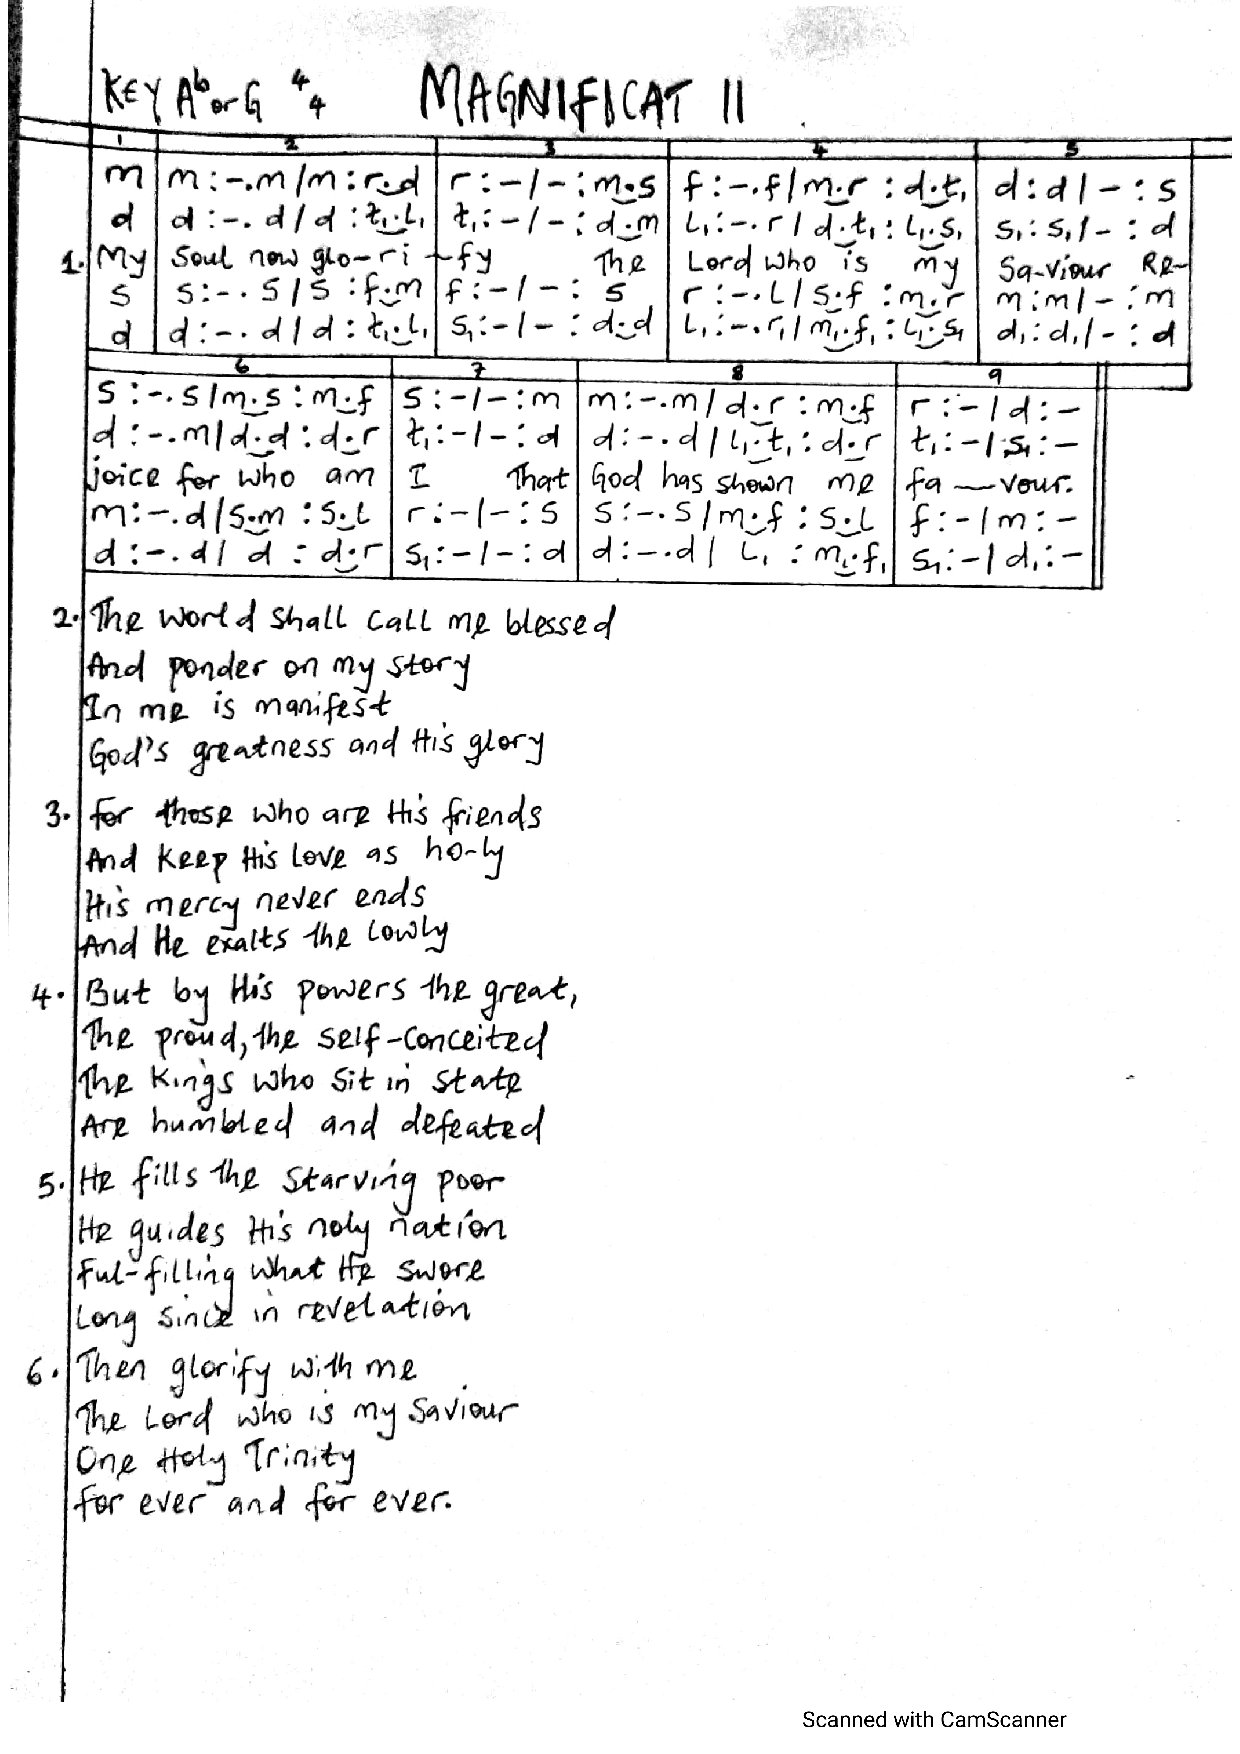 KEY Ab or G 4/4 MAGNIFICAT II
1 2 3 4 5
m | m :-.m / m : r.d | r :- / - : m.s | f :-.f / m.r : d.t₁ | d : d / - : s
d | d :-.d / d : t₁.l₁ | t₁ :- / - : d.m | l₁ :-.r / d.t₁ : l₁.s₁ | s₁ : s₁ / - : d
1. My Soul now glo-ri-fy The Lord who is my Sa-viour Re-
s | s :-.s / s : f.m | f :- / - : s | r :-.l / s.f : m.r | m : m / - : m
d | d :-.d / d : t₁.l₁ | s₁ :- / - : d.d | l₁ :-.r₁ / m₁.f₁ : l₁.s₁ | d₁ : d₁ / - : d
6 7 8 9
s :-.s / m.s : m.f | s :- / - : m | m :-.m / d.r : m.f | r :- / d :-
d :-.m / d.d : d.r | t₁ :- / - : d | d :-.d / l₁.t₁ : d.r | t₁ :- / s₁ :-
joice for who am I That God has shown me fa-vour.
m :-.d / s.m : s.l | r :- / - : s | s :-.s / m.f : s.l | f :- / m :-
d :-.d / d : d.r | s₁ :- / - : d | d :-.d / l₁ : m₁.f₁ | s₁ :- / d₁ :-
2. The world shall call me blessed
And ponder on my story
In me is manifest
God's greatness and His glory
3. for those who are His friends
And keep His love as ho-ly
His mercy never ends
And He exalts the lowly
4. But by His powers the great,
The proud, the self-conceited
The Kings who sit in state
Are humbled and defeated
5. He fills the starving poor
He guides His holy nation
Ful-filling what He swore
Long since in revelation
6. Then glorify with me
The Lord who is my Saviour
One Holy Trinity
for ever and for ever.
Scanned with CamScanner